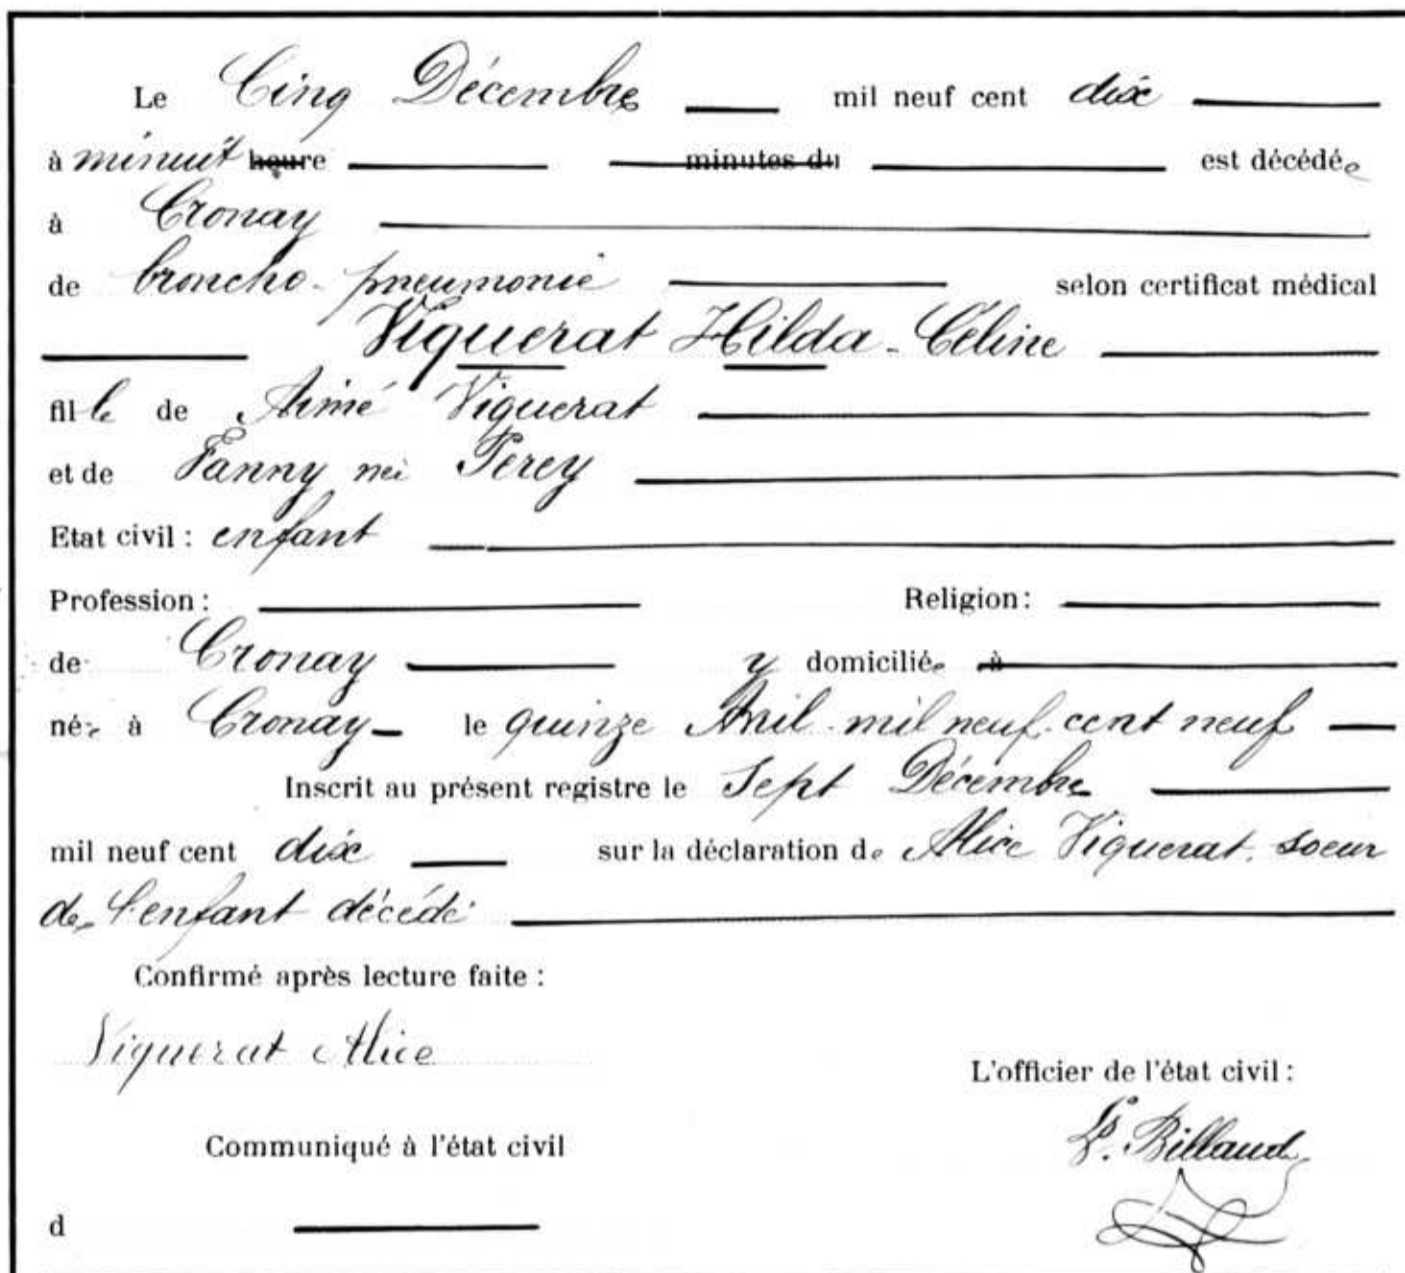 Le Cinq Décembre mil neuf cent dix
à minuit heure minutes du est décédée
à Cronay
de broncho-pneumonie selon certificat médical
Viguerat Hilda-Céline
fille de Aimé Viguerat
et de Fanny née Perey
Etat civil : enfant
Profession : Religion :
de Cronay y domiciliée à
née à Cronay le quinze Avril mil neuf cent neuf
Inscrit au présent registre le Sept Décembre
mil neuf cent dix sur la déclaration de Alice Viguerat, soeur
de l'enfant décédé
Confirmé après lecture faite :
Viguerat Alice
L'officier de l'état civil :
Billaud
Communiqué à l'état civil
d